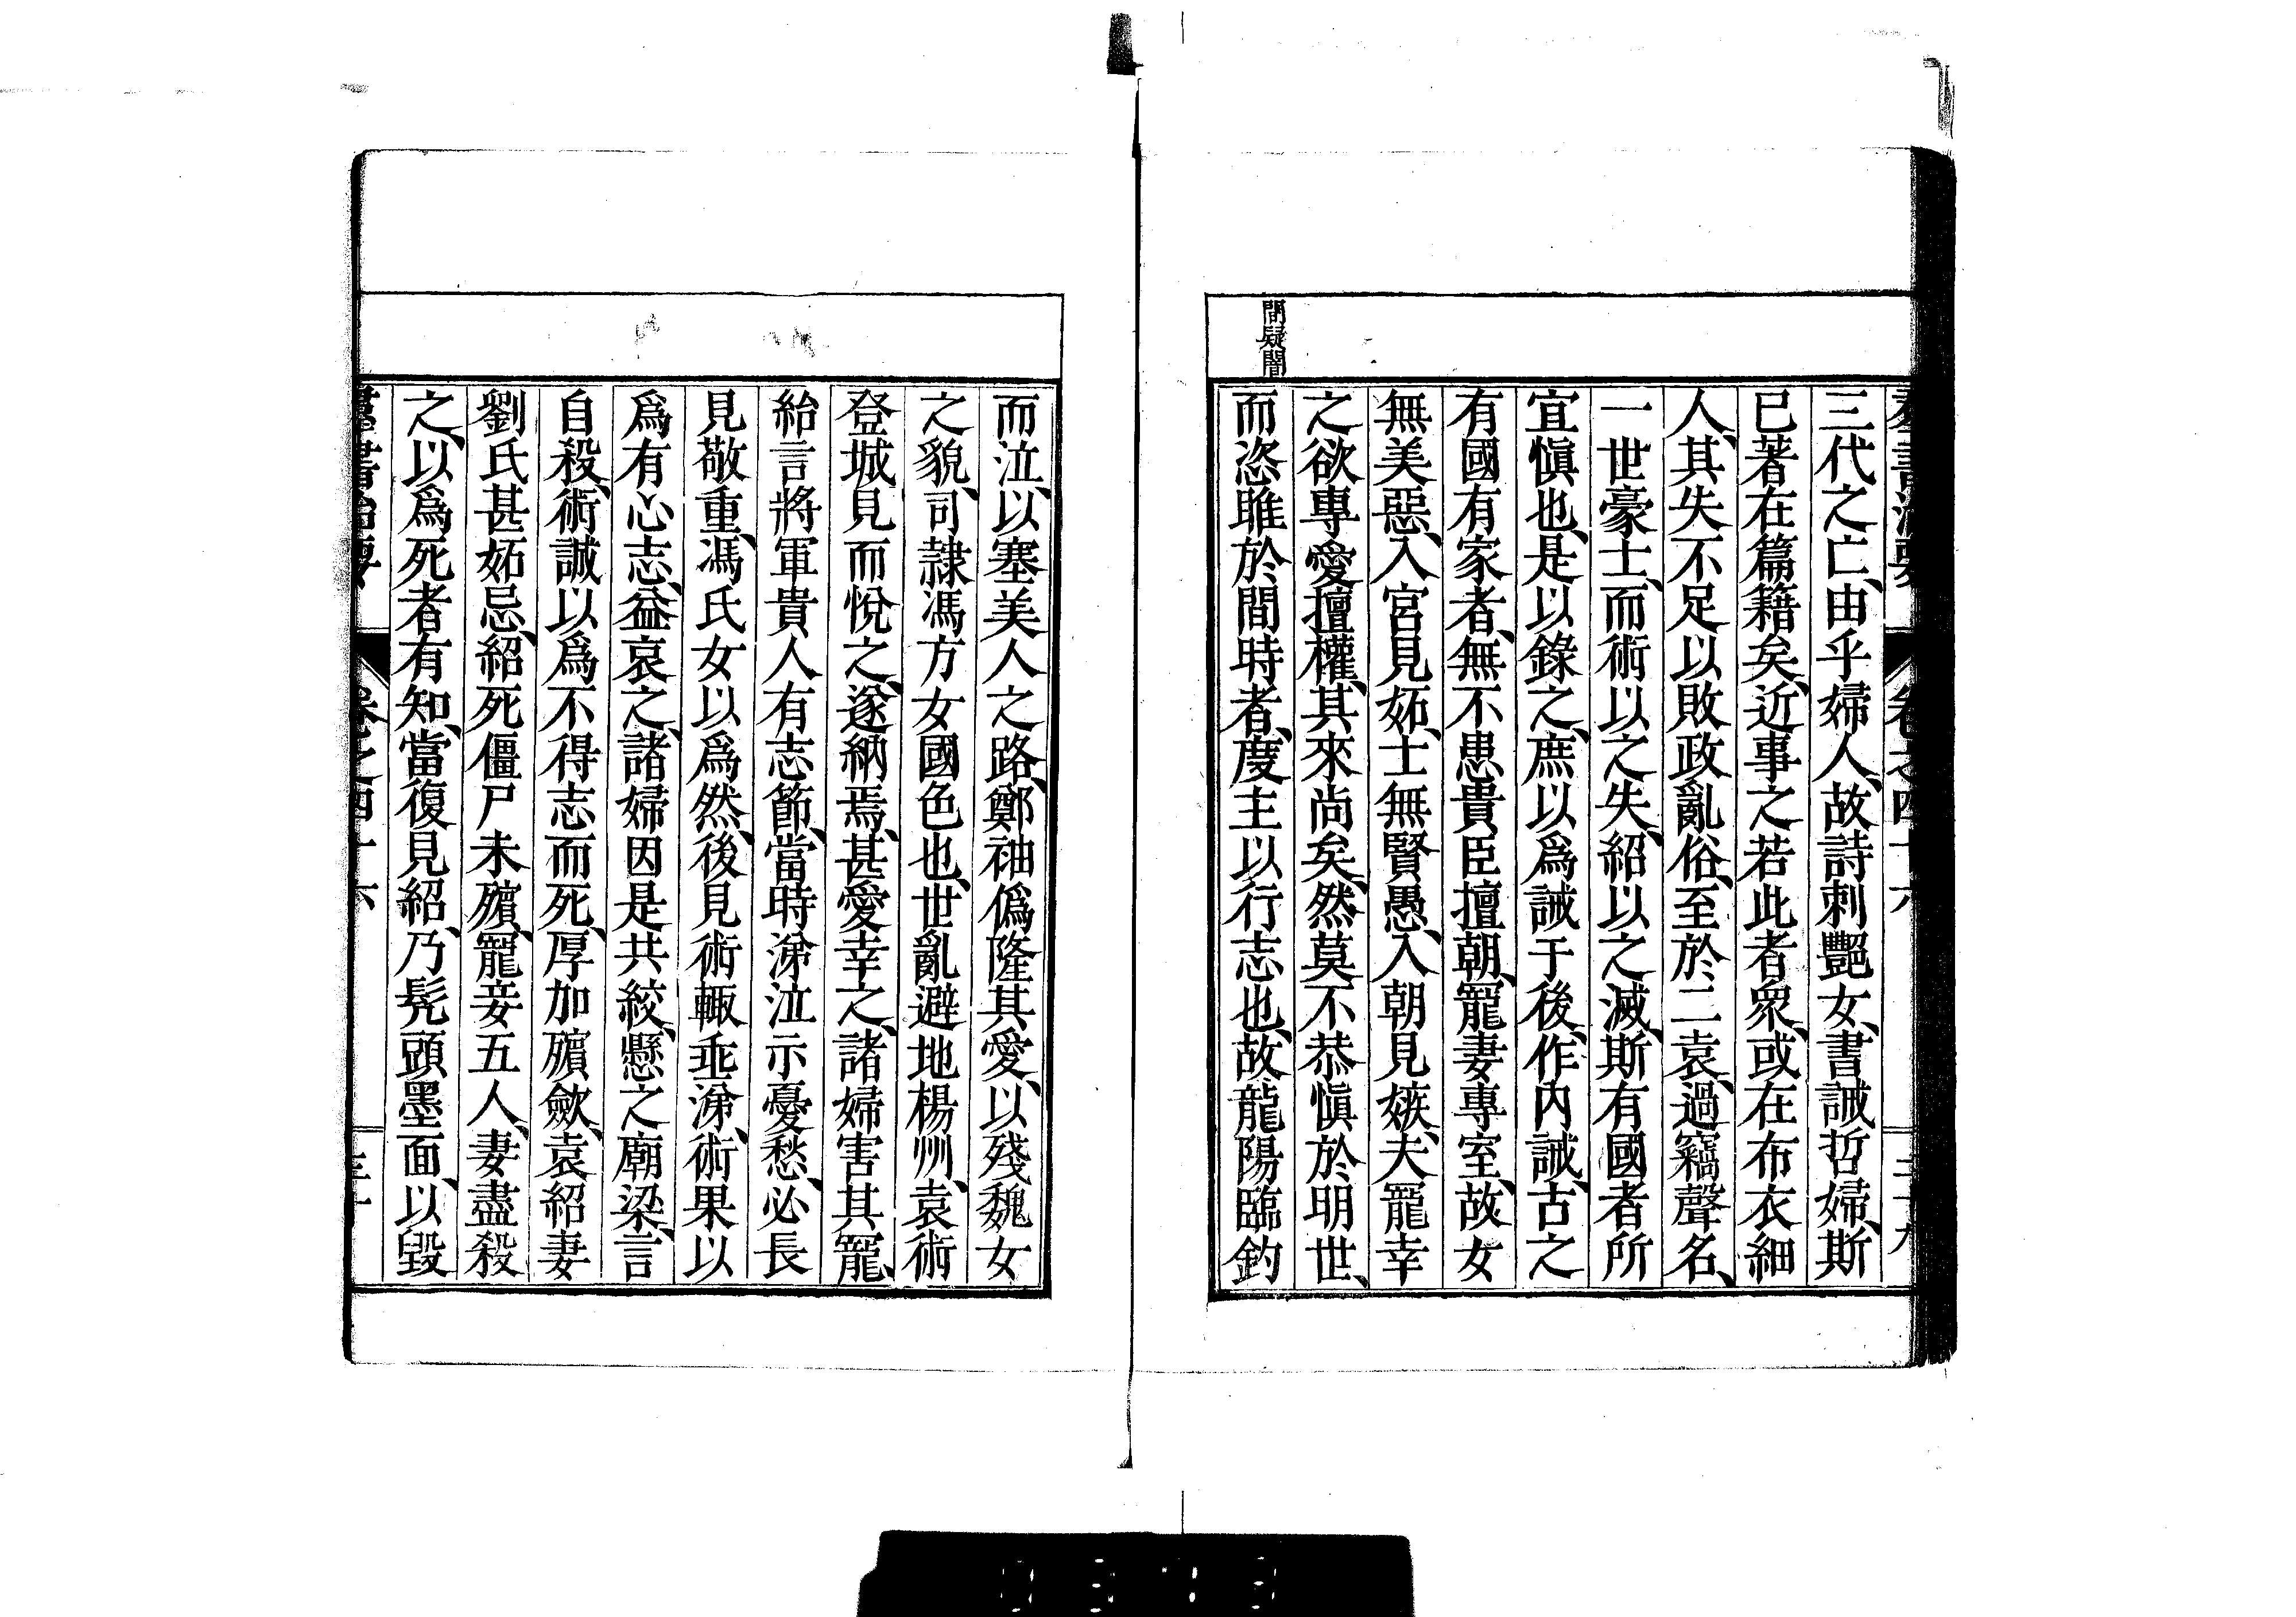 羣書治要 卷之四十六 二十九
三代之亡、由乎婦人、故詩刺豔女、書誡哲婦、斯
已著在篇籍矣、近事之若此者衆、或在布衣細
人、其失不足以敗政亂俗、至於二袁、過竊聲名、
一世豪士、而術以之失、紹以之滅、斯有國者所
宜愼也、是以錄之、庶以爲誡于後、作內誡、古之
有國有家者、無不患貴臣擅朝、寵妻專室、故女
無美惡、入宮見妬、士無賢愚、入朝見嫉、夫寵幸
之欲專愛擅權、其來尚矣、然莫不恭愼於明世、
而恣睢於間時者、度主以行志也、故龍陽臨釣
間疑闇
而泣、以塞美人之路、鄭袖僞隆其愛、以殘魏女
之貌、司隷馮方女國色也、世亂避地楊州、袁術
登城見而悅之、遂納焉、甚愛幸之、諸婦害其寵、
紿言將軍貴人有志節、當時涕泣示憂愁、必長
見敬重、馮氏女以爲然、後見術輒垂涕、術果以
爲有心志、益哀之、諸婦因是共絞、懸之廟梁、言
自殺、術誠以爲不得志而死、厚加殯斂、袁紹妻
劉氏甚妬忌、紹死僵尸未殯、寵妾五人、妻盡殺
之、以爲死者有知、當復見紹、乃髡頭墨面、以毀
羣書治要 卷之四十六 三十